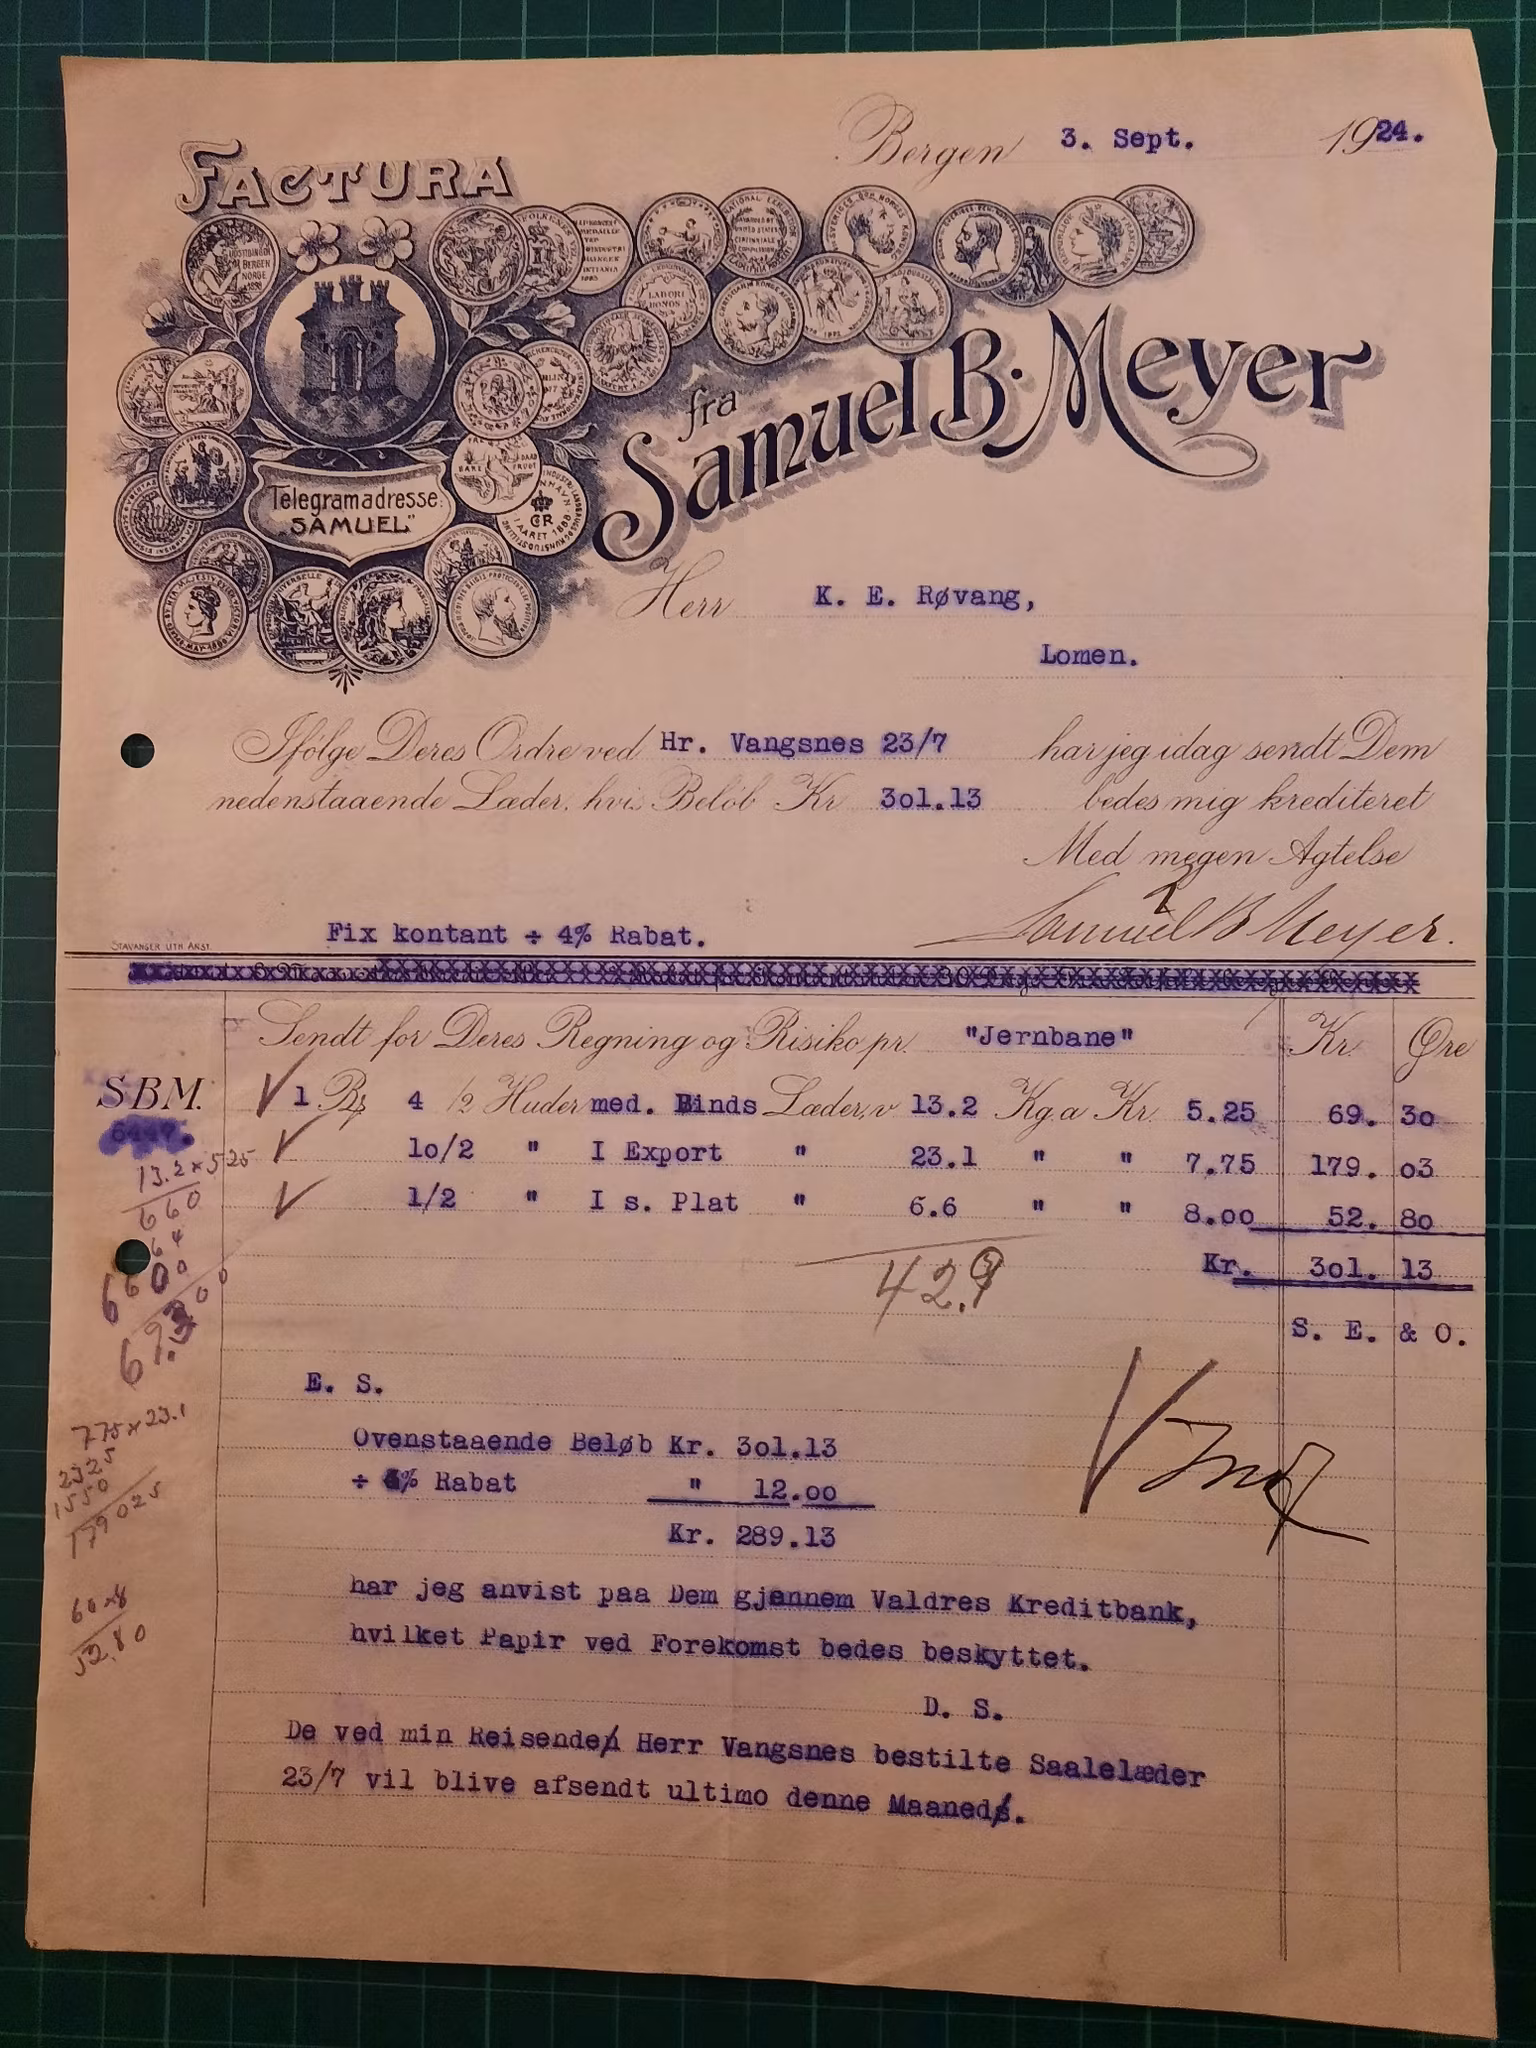 Bergen 3. Sept. 1924.
FACTURA
fra
Samuel B. Meyer
Telegramadresse:
„SAMUEL"
Herr K. E. Røvang,
Lomen.
Ifölge Deres Ordre ved Hr. Vangsnes 23/7 har jeg idag sendt Dem
nedenstaaende Læder, hvis Beløb Kr 3o1.13 bedes mig krediteret
Med megen Agtelse
Samuel B Meyer.
STAVANGER LITH. ANST.
Fix kontant ÷ 4% Rabat.
Sendt for Deres Regning og Risiko pr. "Jernbane" Kr. Øre
S.B.M. 1 4 1/2 Huder med. Binds Læder, v 13.2 Kg. a Kr. 5.25 69. 3o
1o/2 " I Export " 23.1 " " 7.75 179. o3
1/2 " I s. Plat " 6.6 " " 8.oo 52. 8o
Kr. 3o1. 13
42.9
S. E. & O.
13.2 x 525
660
69.300
775 x 23.1
2325
1550
179025
52.80
E. S.
Ovenstaaende Beløb Kr. 3o1.13
÷ 4% Rabat " 12.oo
Kr. 289.13
har jeg anvist paa Dem gjennem Valdres Kreditbank,
hvilket Papir ved Forekomst bedes beskyttet.
D. S.
De ved min Reisende Herr Vangsnes bestilte Saalelæder
23/7 vil blive afsendt ultimo denne Maaned.